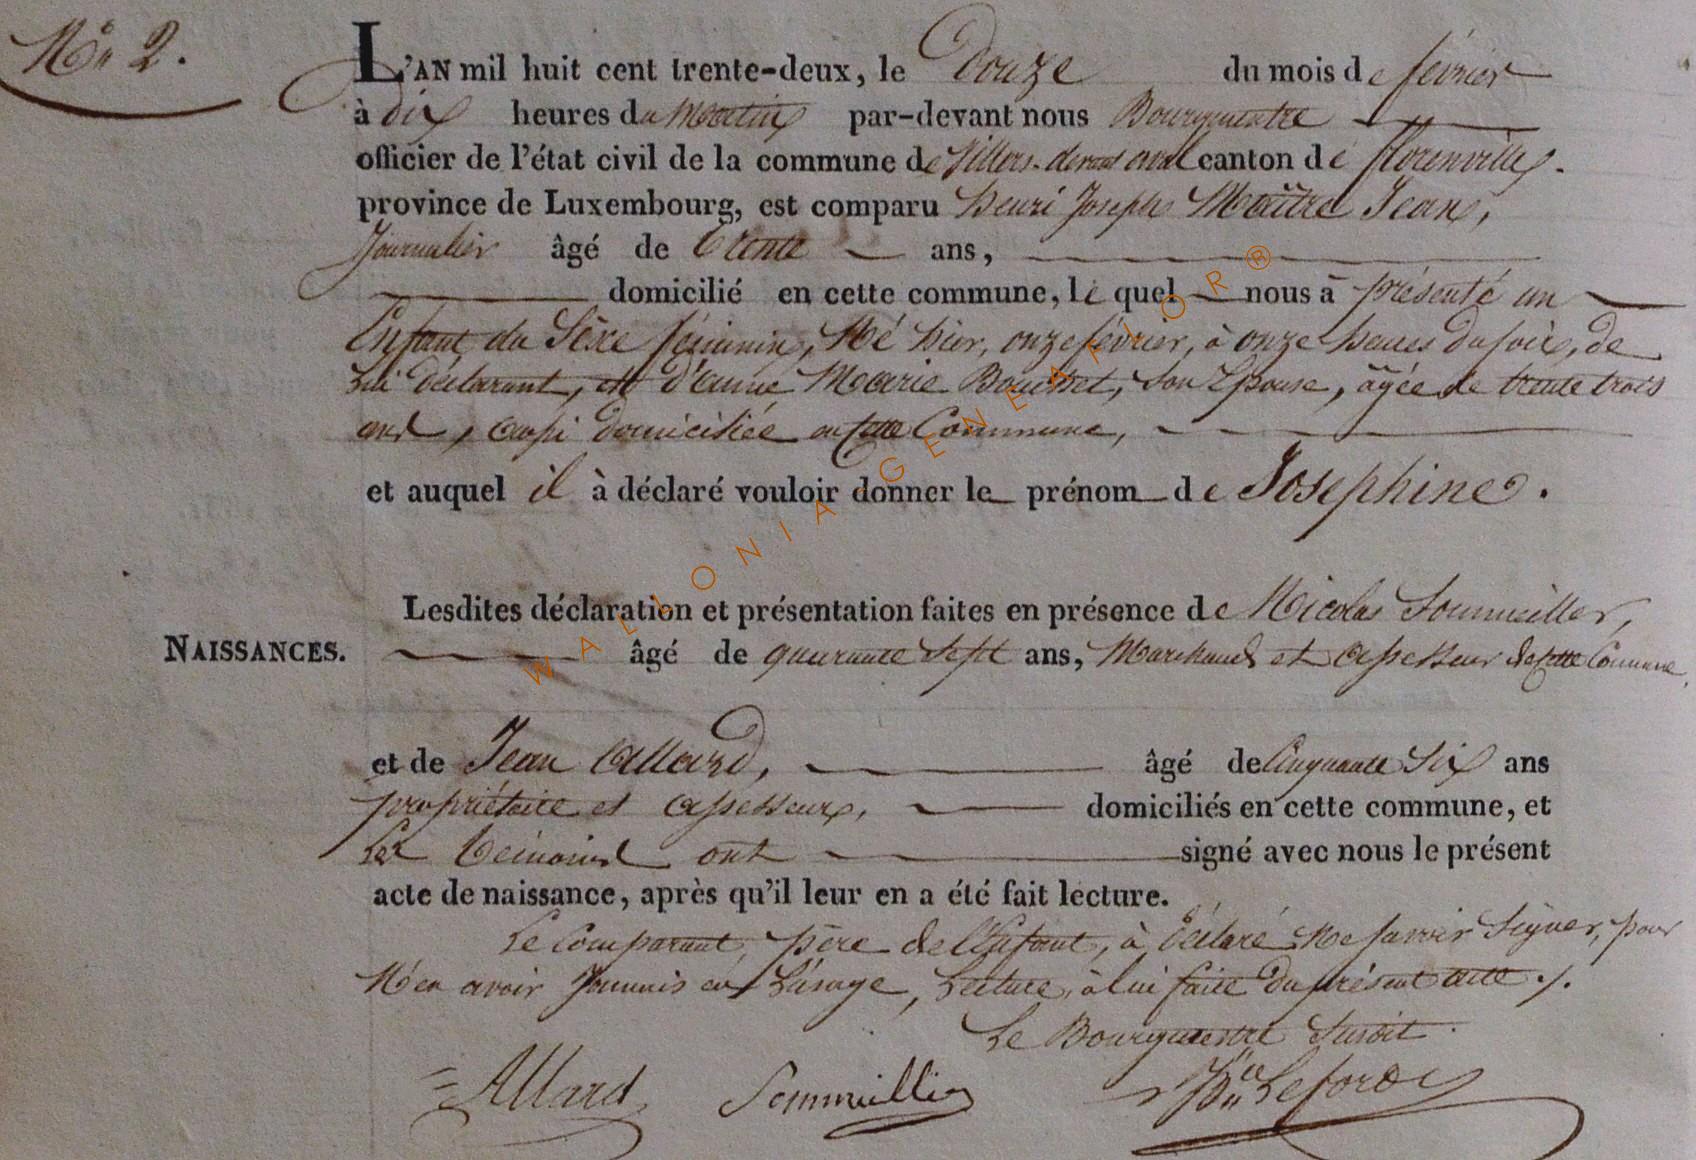 N.° 2.
L'AN mil huit cent trente-deux, le Douze du mois de février
à dix heures du Matin par-devant nous Bourguestre
officier de l'état civil de la commune de Villers-devant orval canton de florenville.
province de Luxembourg, est comparu henri Joseph Maître Jean,
Journalier âgé de trente ans,
domicilié en cette commune, le quel nous à présenté un
Enfant du Sexe féminin, Né hier, onze février, à onze heures du soir, de
Lui déclarant, et d'anne Marie Bouchet, son Epouse, âgée de trente trois
ans, aussi domiciliée en cette Commune,
et auquel il à déclaré vouloir donner le prénom de Josephine.
Lesdites déclaration et présentation faites en présence de Nicolas Soumeiller,
NAISSANCES.
âgé de quarante sept ans, Marchand et assesseur de cette Commune,
et de Jean Allard, âgé de Cinquante Six ans
propriétaire et assesseur, domiciliés en cette commune, et
Les témoins ont signé avec nous le présent
acte de naissance, après qu'il leur en a été fait lecture.
Le Comparant, père de l'Enfant, à déclaré Ne savoir Signer, pour
N'en avoir Jamais eu L'usage, Lecture à lui faite du présent acte ./.
Le Bourguestre Susdit
Allard Sommeillier Leforde
WALLONIA GENEAFIOR®